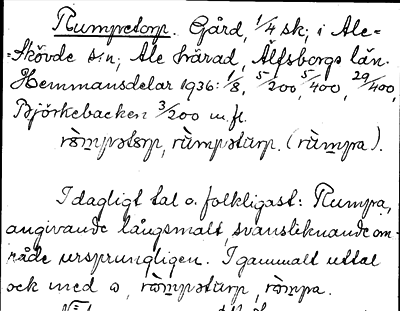 Rumpetorp. Gård, 1/4 sk; i Ale=
=Skövde s:n; Ale härad, Älfsborgs län.
Hemmansdelar 1936: 1/8, 5/200, 5/400, 29/400,
Björkebacken 3/200 m.fl.
I dagligt tal o. folkligast: Rumpa,
angivande långsmalt, svansliknande om-
råde ursprungligen. I gammalt uttal
ock med